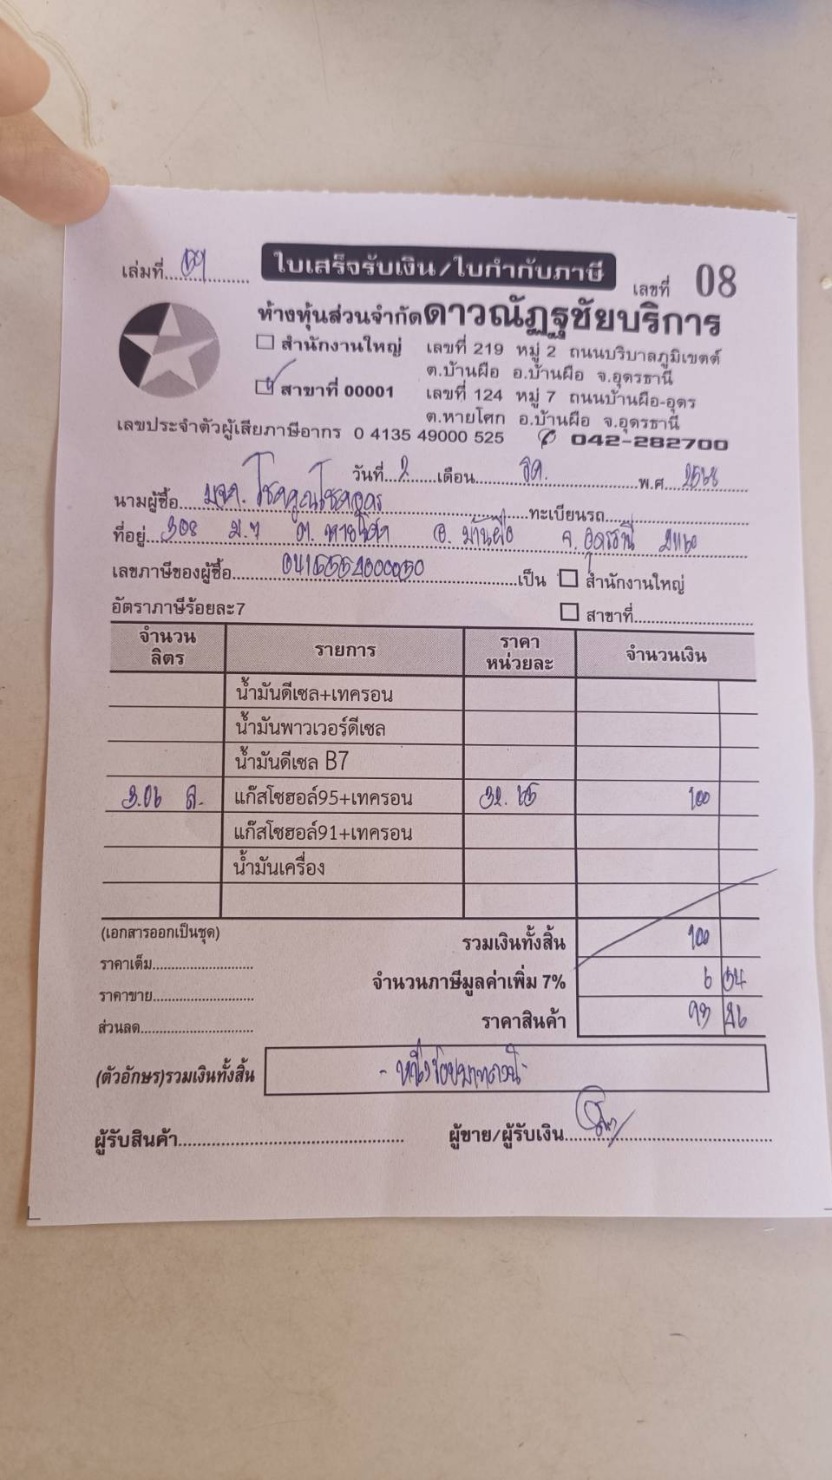 เล่มที่ 09 ใบเสร็จรับเงิน/ใบกำกับภาษี เลขที่ 08
ห้างหุ้นส่วนจำกัดดาวณัฏฐชัยบริการ
สำนักงานใหญ่ เลขที่ 219 หมู่ 2 ถนนบริบาลภูมิเขตต์
ต.บ้านผือ อ.บ้านผือ จ.อุดรธานี
สาขาที่ 00001 เลขที่ 124 หมู่ 7 ถนนบ้านผือ-อุดร
ต.หายโศก อ.บ้านผือ จ.อุดรธานี
เลขประจำตัวผู้เสียภาษีอากร 0 4135 49000 525 042-282700
วันที่ 2 เดือน ธค. พ.ศ. 2568
นามผู้ซื้อ โชคคูณโชคอุดร ทะเบียนรถ
ที่อยู่ 308 ม.7 ต. หายโศก อ. บ้านผือ จ. อุดรธานี 41160
เลขภาษีของผู้ซื้อ เป็น สำนักงานใหญ่
อัตราภาษีร้อยละ7 สาขาที่
จำนวนลิตร รายการ ราคาหน่วยละ จำนวนเงิน
น้ำมันดีเซล+เทครอน
น้ำมันพาวเวอร์ดีเซล
น้ำมันดีเซล B7
3.06 ล. แก๊สโซฮอล์95+เทครอน 32.65 100
แก๊สโซฮอล์91+เทครอน
น้ำมันเครื่อง
(เอกสารออกเป็นชุด) รวมเงินทั้งสิ้น 100
ราคาเต็ม
จำนวนภาษีมูลค่าเพิ่ม 7% 6 54
ราคาขาย
ส่วนลด ราคาสินค้า 93 46
(ตัวอักษร)รวมเงินทั้งสิ้น - หนึ่งร้อยบาทถ้วน -
ผู้รับสินค้า ผู้ขาย/ผู้รับเงิน